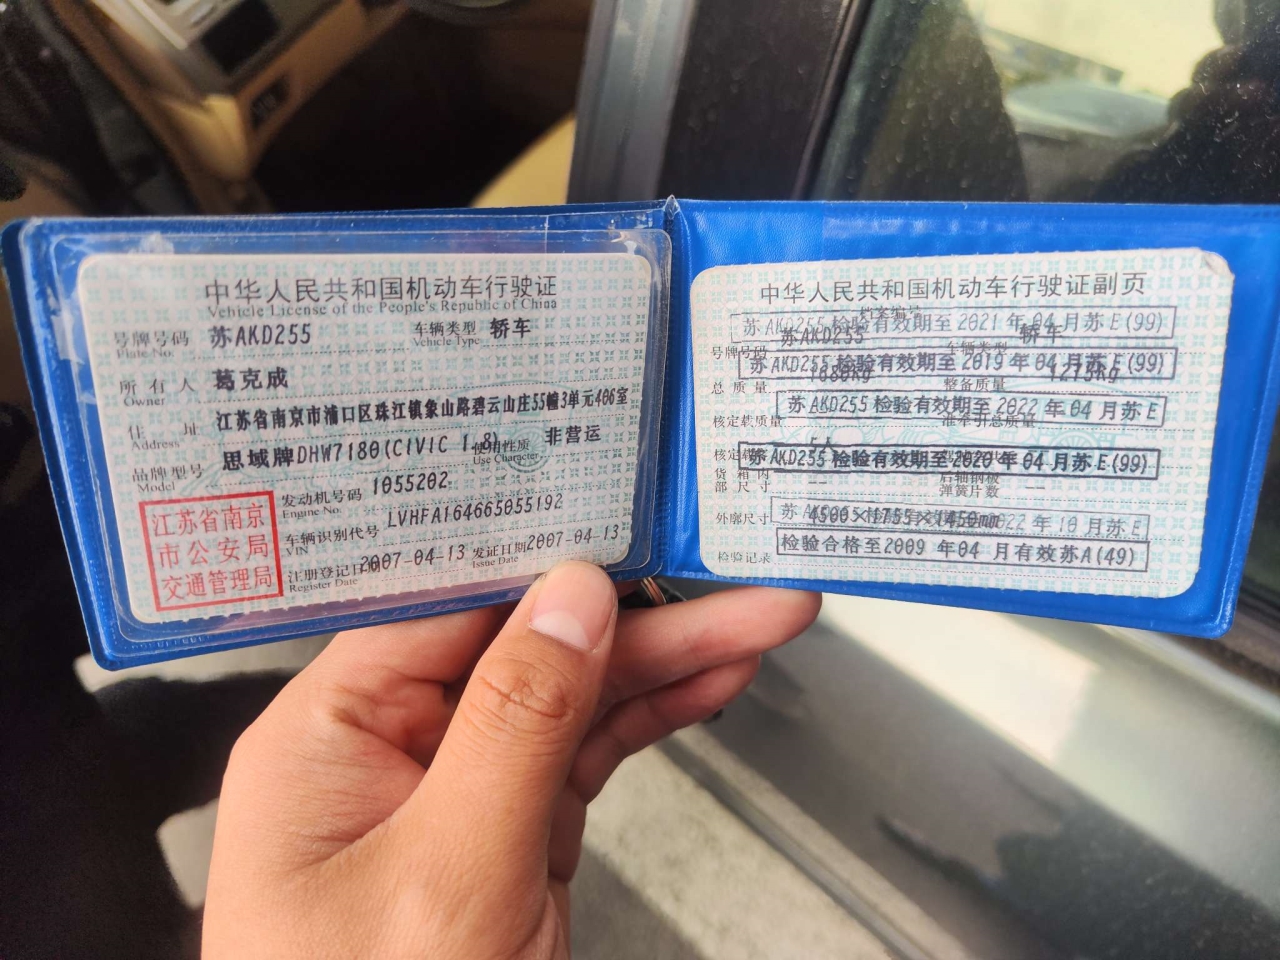 中华人民共和国机动车行驶证
Vehicle License of the People's Republic of China
号牌号码 苏AKD255 车辆类型 轿车
Plate No. Vehicle Type
所有人 葛克成
Owner
住址 江苏省南京市浦口区珠江镇象山路碧云山庄55幢3单元406室
Address
品牌型号 思域牌DHW7180(CIVIC 1.8) 使用性质 非营运
Model Use Character
江苏省南京
市公安局
交通管理局
发动机号码 1055202
Engine No.
车辆识别代号 LVHFA164665055192
VIN
注册登记日期 2007-04-13 发证日期 2007-04-13
Register Date Issue Date
中华人民共和国机动车行驶证副页
档案编号
苏AKD255检验有效期至2021年04月苏E(99)
号牌号码 苏AKD255 车辆类型 轿车
苏AKD255检验有效期至2019年04月苏E(99)
总质量 整备质量
苏AKD255检验有效期至2022年04月苏E
核定载质量 准牵引总质量
核定载客 5人
苏AKD255检验有效期至2020年04月苏E(99)
货箱内部尺寸 -- 后轴钢板弹簧片数 --
外廓尺寸 4500×1755×1450mm
2022年10月苏E
检验记录 检验合格至2009年04月有效苏A(49)